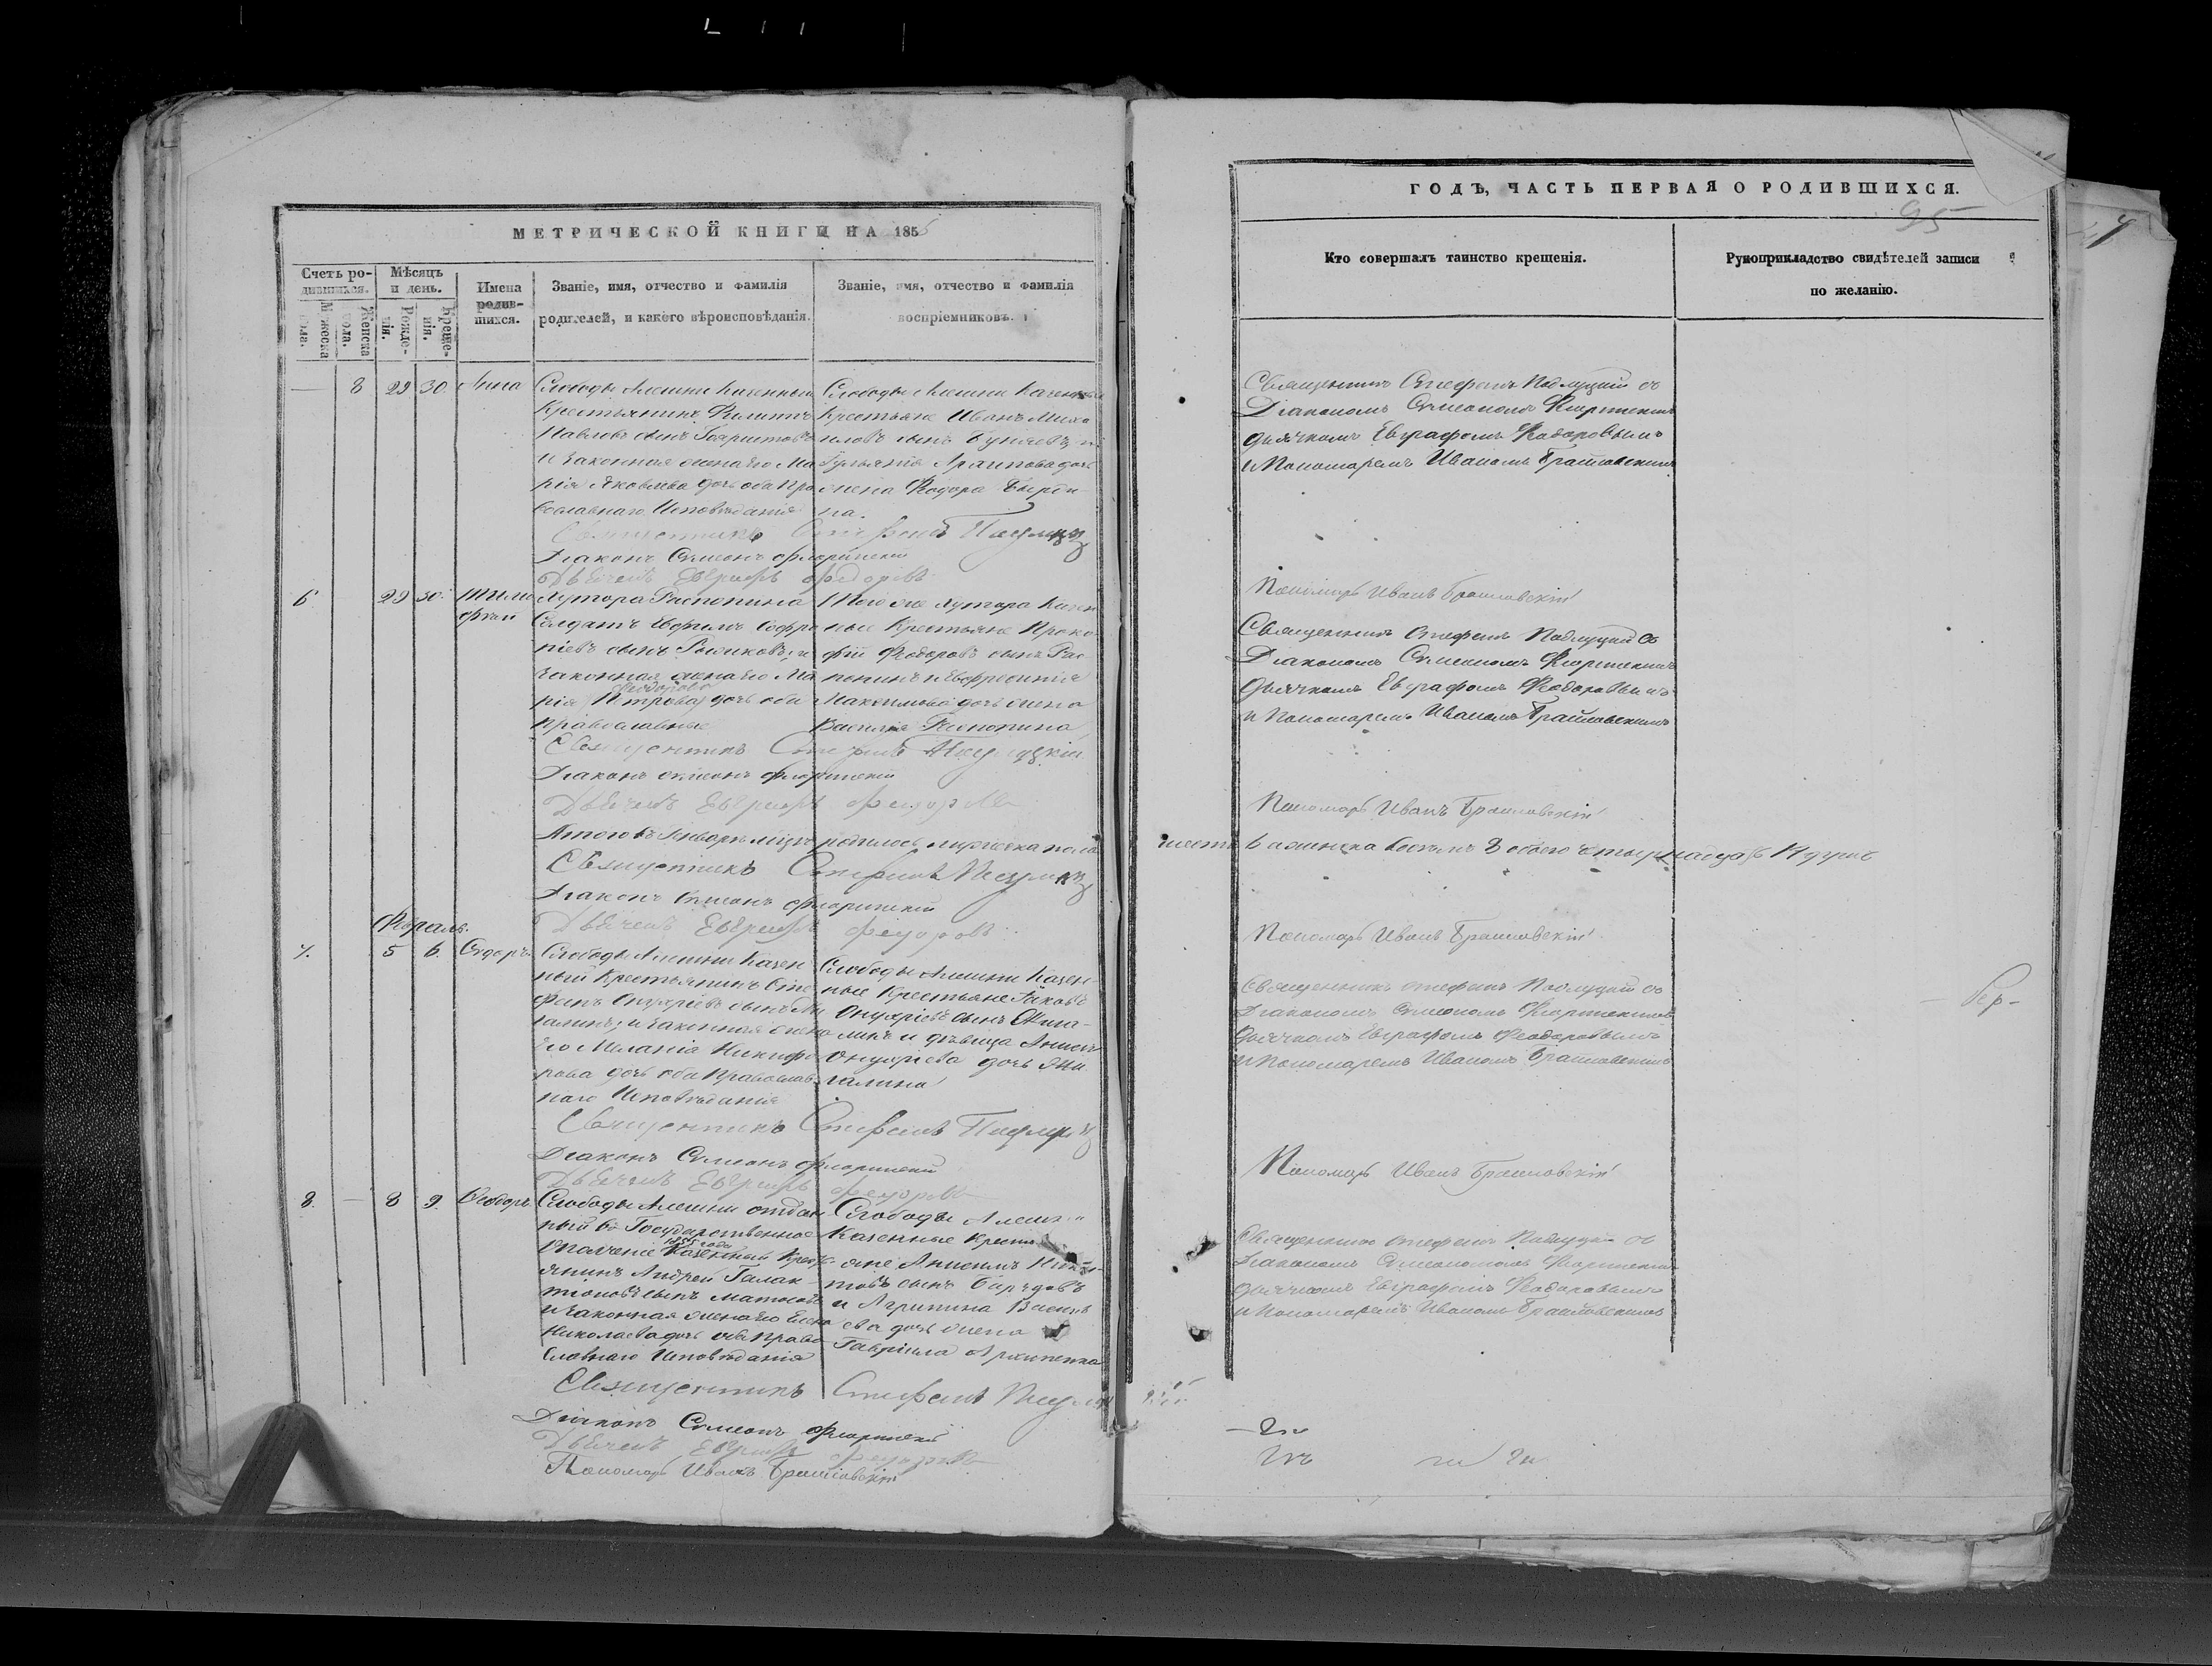 МЕТРИЧЕСКОЙ КНИГИ НА 185
Счетъ ро-
дившихся.
Мѣсяцъ
и день.
Мужеска
пола.
Женска
пола.
Рожде-
нія.
Креще-
нія.
Имена
родив-
шихся.
Званіе, имя, отчество и фамилія
родителей, и какого вѣроисповѣданія.
Званіе, имя, отчество и фамилія
воспріемниковъ.
8 29 30 Анна
Слободы Алешни Казенный
Крестьянинъ Филиппъ
Павловъ сынъ
и законная жена его Ма
рія Яковлева дочь оба Пра
вославнаго Исповѣданія
Слободы Алешни Казенные
Крестьяне Иванъ Миха
иловъ сынъ
дочь
жена Ѳедора
на.
Священникъ Стефанъ
Діаконъ Симеонъ Флоринскій
Дьячекъ Евграфъ Федоровъ
6 29 30 Тимо
фей
Хутора Распопина
Солдатъ Ефимъ Софро
ніевъ сынъ и
законная жена его Ма
рія Ѳеодорова Петрова дочь оба
православные
Того же хутора Казен
ные Крестьяне Проко
фій Ѳедоровъ сынъ Рас
попинъ и Евфросинія
Максимова дочь жена
Василія Распопина
Священникъ Стефанъ
Діаконъ Симеонъ Флоринскій
Дьячекъ Евграфъ Федоровъ
Итого въ Январѣ мцѣ родилось мужеска пола
Священникъ Стефанъ
Діаконъ Симеонъ Флоринскій
Дьячекъ Евграфъ Федоровъ
Февраль.
7. 5 6. Сидоръ.
Слободы Алешни Казен
ный Крестьянинъ Сте
фанъ Онуфріевъ сынъ Ми
галинъ, и законная жена
его Меланія Никифо
рова дочь оба Православ
наго Исповѣданія
Слободы Алешни Казен-
ные Крестьяне Іаковъ
Онуфріевъ сынъ
и дѣвица
Онуфріева дочь Ми
галина
Священникъ Стефанъ
Діаконъ Симеонъ Флоринскій
Дьячекъ Евграфъ Федоровъ
8. 8 9. Ѳеодоръ.
Слободы Алешни отдан
ный въ Государственное
1855 года
Казенный Кресть
янинъ Андрей Галак-
тіоновъ сынъ
и законная жена его Елена
Николаева дочь оба право
славнаго Исповѣданія
Слободы Алешни
Казенные Кресть
яне Анисимъ
сынъ
и Агрипина Василь
ева дочь жена
Гавріила Архипенка
Священникъ Стефанъ
Діаконъ Симеонъ Флоринскій
Дьячекъ Евграфъ Федоровъ
Пономарь Иванъ Браиловскій
ГОДЪ, ЧАСТЬ ПЕРВАЯ О РОДИВШИХСЯ.
95
Кто совершалъ таинство крещенія.
Рукоприкладство свидѣтелей записи
по желанію.
Священникъ Стефанъ съ
Діакономъ Симеономъ Флоринскимъ
дьячкомъ Евграфомъ Ѳедоровымъ
и Пономаремъ Иваномъ Браиловскимъ
Пономарь Иванъ Браиловскій
Священникъ Стефанъ съ
Діакономъ Симеономъ Флоринскимъ
дьячкомъ Евграфомъ Ѳеодоровымъ
и Пономаремъ Иваномъ Браиловскимъ
Пономарь Иванъ Браиловскій
шесть 6 а женска восемь 8 обоего четырнадцать 14 душъ
Пономарь Иванъ Браиловскій
Священникъ Стефанъ съ
Діакономъ Симеономъ Флоринскимъ
дьячкомъ Евграфомъ Ѳеодоровымъ
и Пономаремъ Иваномъ Браиловскимъ
Пономарь Иванъ Браиловскій
Священникъ Стефанъ съ
Діакономъ Симеономъ Флоринскимъ
дьячкомъ Евграфомъ Ѳеодоровымъ
и Пономаремъ Иваномъ Браиловскимъ